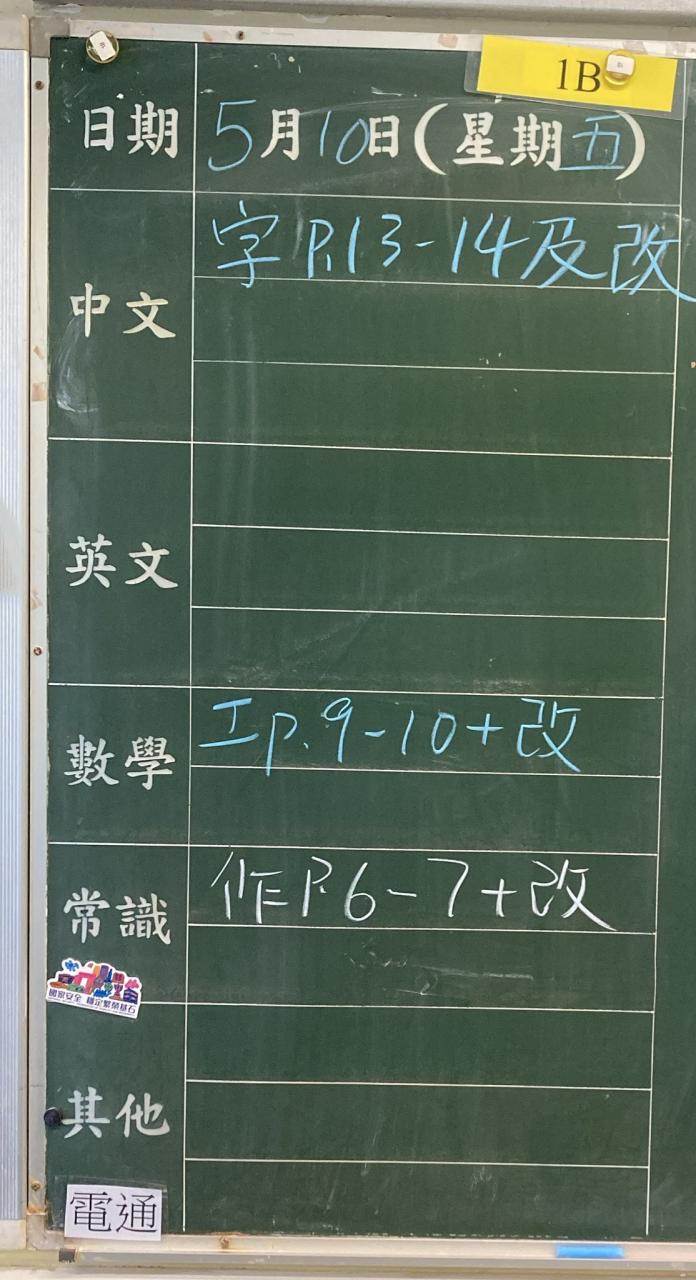 1B
日期 5月10日(星期五)
中文 字 P.13-14及改
英文
數學 工p.9-10+改
常識 作P.6-7+改
國家安全 穩定繁榮基石
其他
電通